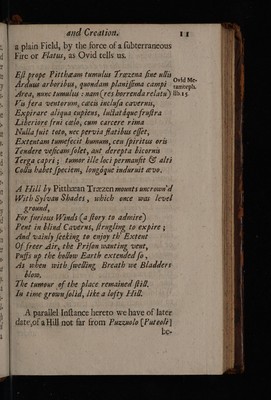 and Creation. 11
a plain Field, by the force of a ſubterraneous
Fire or Flatus, as Ovid tells us.
Eſt prope Pitthæam tumulus Træzena ſine ullis
Arduus arboribus, quondam planiſſima campi
Area, nunc tumulus : nam (res horrenda relatu)
Vis fera ventorum, cæcis incluſa cavernis,
Expirare aliqua cupiens, luctatáque fruſtra
Liberiore frui cœlo, cum carcere rima
Nulla fuit toto, nec pervia flatibus eſſet,
Extentam tumefecit humum, ceu ſpiritus oris
Tendere veſicam ſolet, aut derepta bicornis
Terga capri ; tumor ille loci permanſit & alti
Collis habet ſpeciem, longóque induruit ævo.
Ovid Me-
tamorph.
lib. 15.
A Hill by Pitthæan Trœzen mounts uncrown'd
With Sylvan Shades, which once was level
ground,
For furious Winds (a ſtory to admire)
Pent in blind Caverns, ſtrugling to expire ;
And vainly ſeeking to enjoy th' Extent
Of freer Air, the Priſon wanting vent,
Puffs up the hollow Earth extended ſo,
As when with ſwelling Breath we Bladders
blow.
The tumour of the place remained ſtill,
In time grown ſolid, like a lofty Hill.
A parallel Inſtance hereto we have of later
date, of a Hill not far from Puzzuolo [Puteoli]
be-